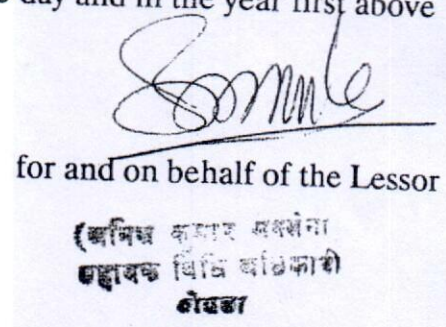 day and in the year first above
for and on behalf of the Lessor
कुमार सक्सेना
सहायक विधि अधिकारी
नोएडा